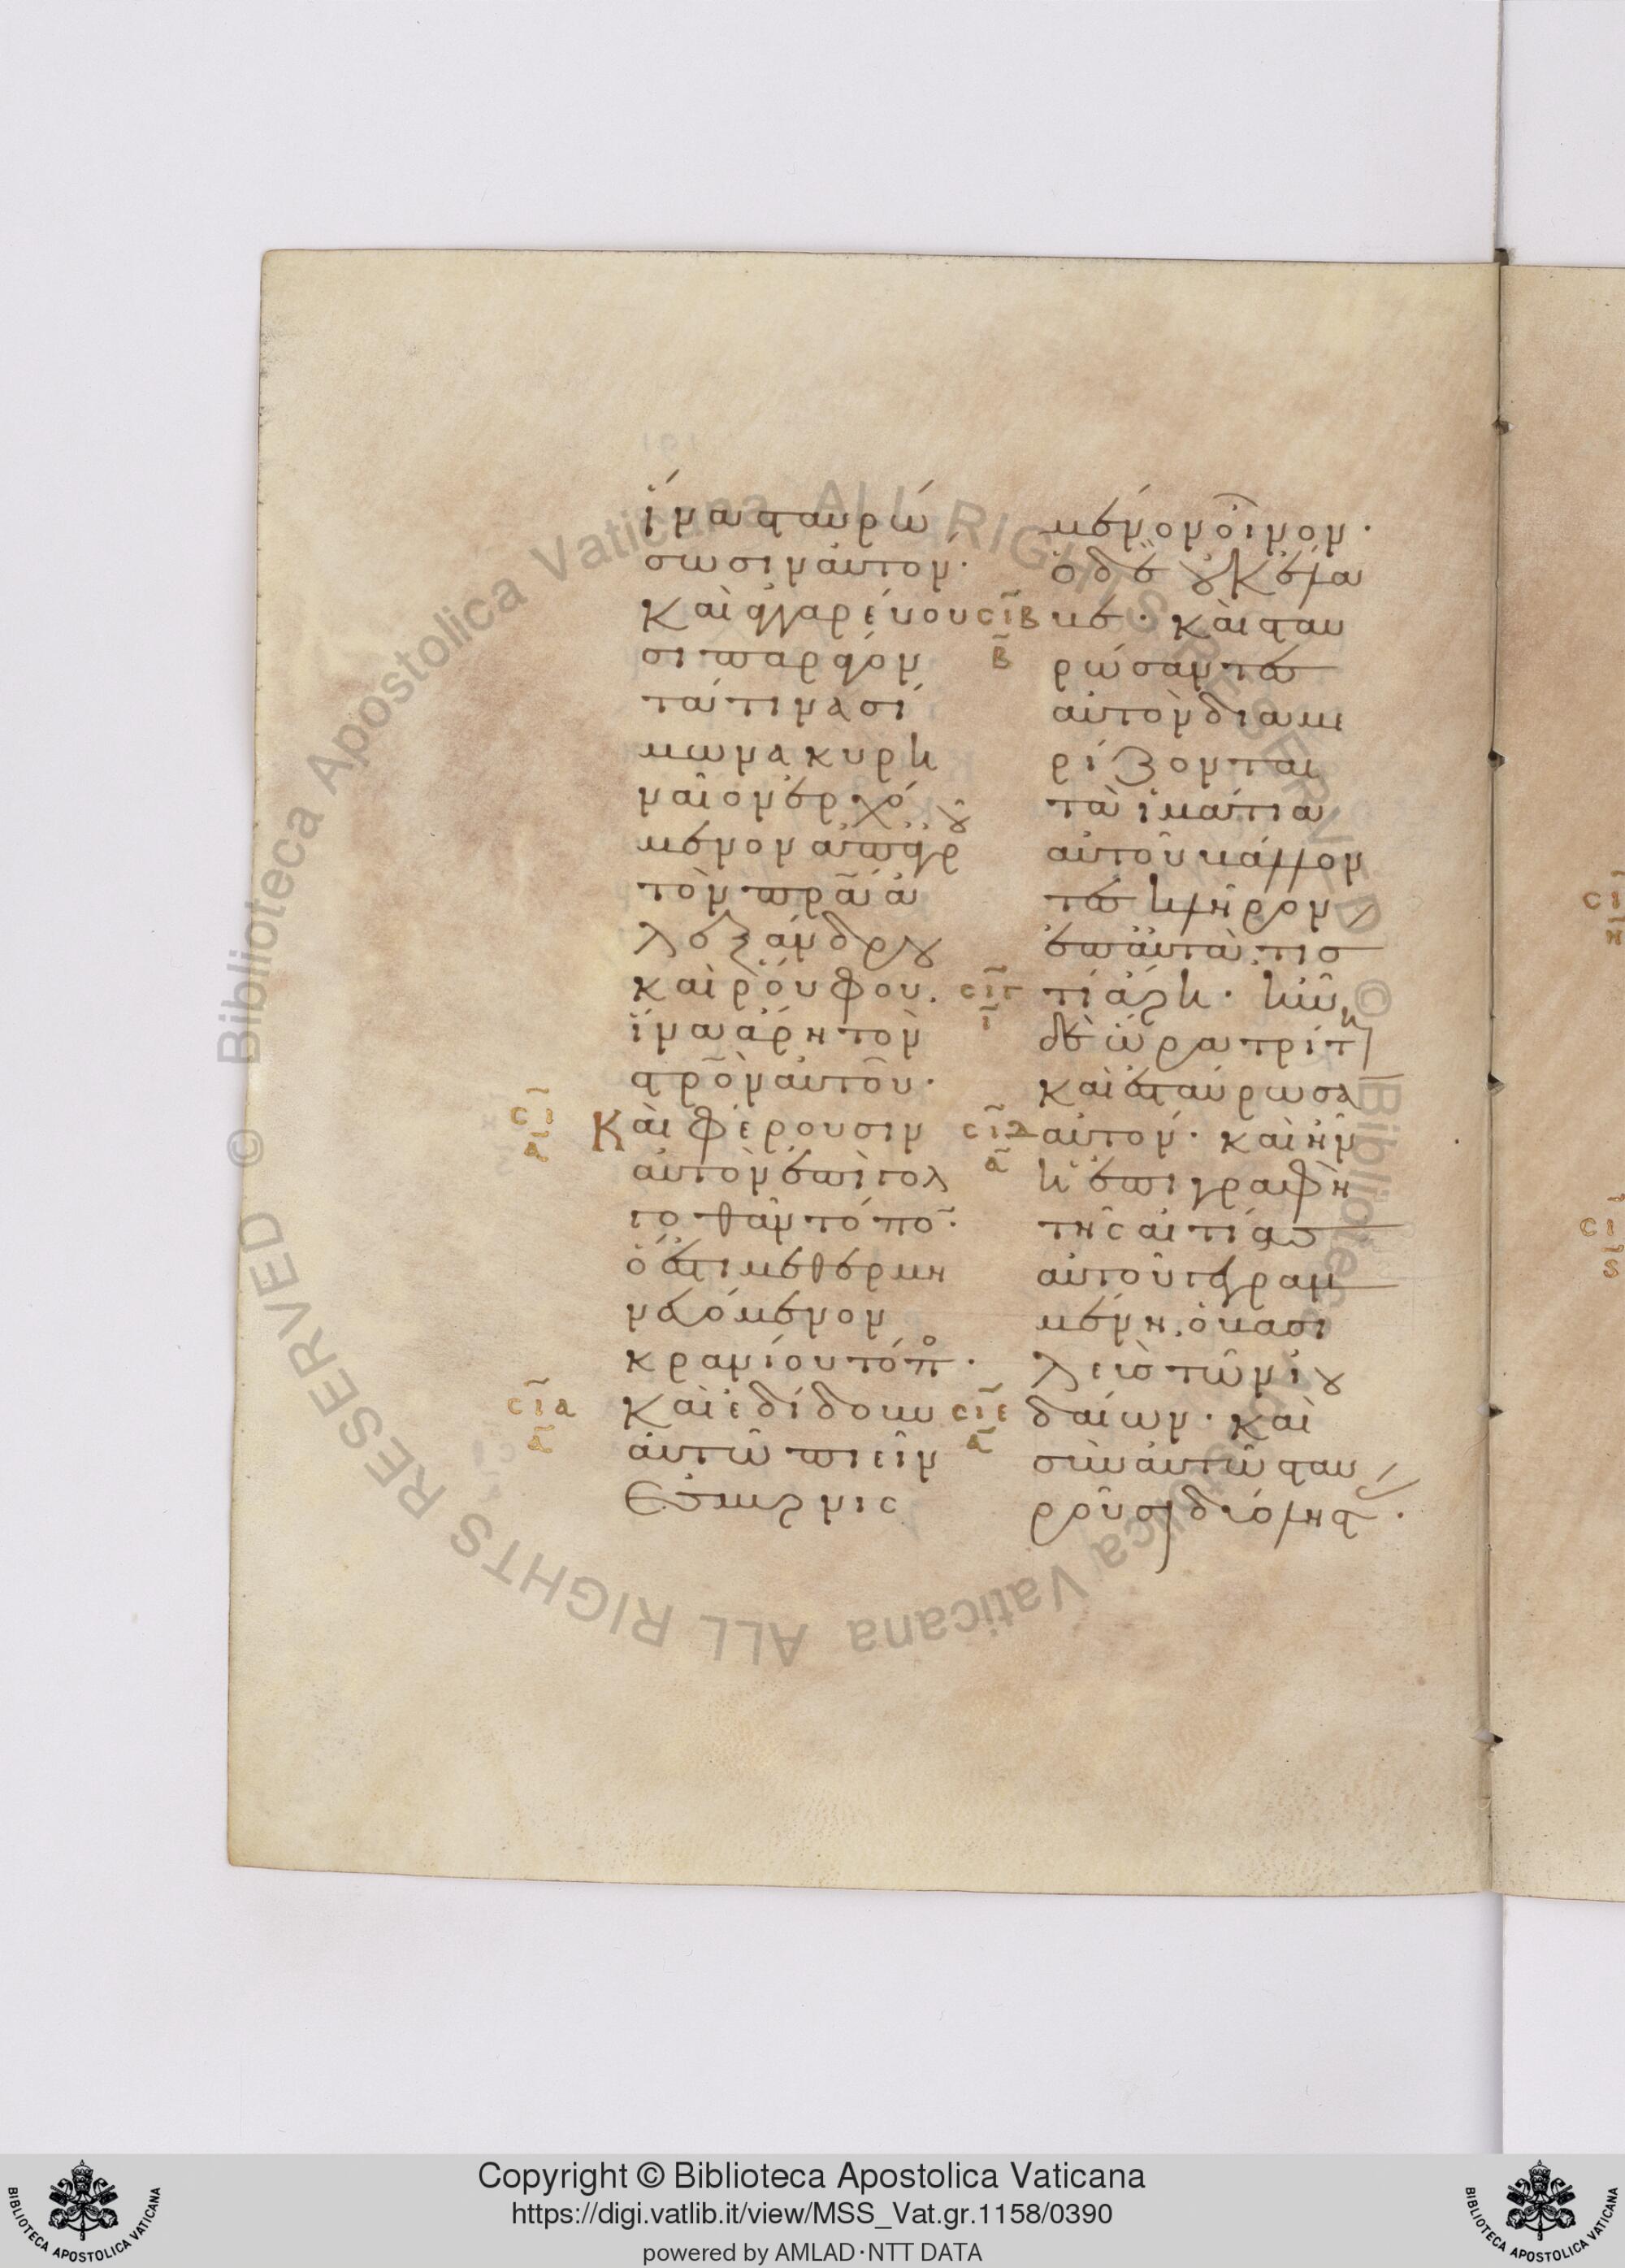 ἵνα σταυρώ
σωσιν αὐτόν·
καὶ ἀγγαρεύου
σι παράγον
τά τινα σί
μωνα κυρη
ναῖον ἐρχό
μενον ἀπ' ἀγροῦ
τὸν πρα ἀ
λεξάνδρου
καὶ ῥούφου.
ἵνα ἄρῃ τὸν
στρον αὐτοῦ·
σι α
Καὶ φέρουσιν
αὐτὸν ἐπὶ γολ
γοθᾶν τόπον·
ὅ ἐστι μεθερμη
νευόμενον
κρανίου τόπο·
σια α
καὶ ἐδίδουν
αὐτῶ πιεῖν
ἐσμυρνισ
μένον οἶνον·
ὁ δὲ οὐκ ἔλα
σιβ β
βε· καὶ σταυ
ρώσαντες
αὐτὸν διαμε
ρίζονται
τὰ ἱμάτια
αὐτοῦ βάλλον
τες κλῆρον
ἐπ' αὐτὰ τίς
σιγ ι
τί ἄρῃ· ἦν
δὲ ὥρα τρίτη
καὶ ἐσταύρωσαν
σιδ α
αὐτόν· καὶ ἦν
ἡ ἐπιγραφὴ
τῆς αἰτίας
αὐτοῦ γεγραμ
μένη, ὁ βασι
λεὺς τῶν ἰου
σιε α
δαίων· καὶ
σὺν αὐτῶ σταυ
ροῦσι δύο ληστάς·
Copyright © Biblioteca Apostolica Vaticana
https://digi.vatlib.it/view/MSS_Vat.gr.1158/0390
powered by AMLAD·NTT DATA
BIBLIOTECA APOSTOLICA VATICANA
BIBLIOTECA APOSTOLICA VATICANA
© Biblioteca Apostolica Vaticana ALL RIGHTS RESERVED © Biblioteca Apostolica Vaticana ALL RIGHTS RESERVED